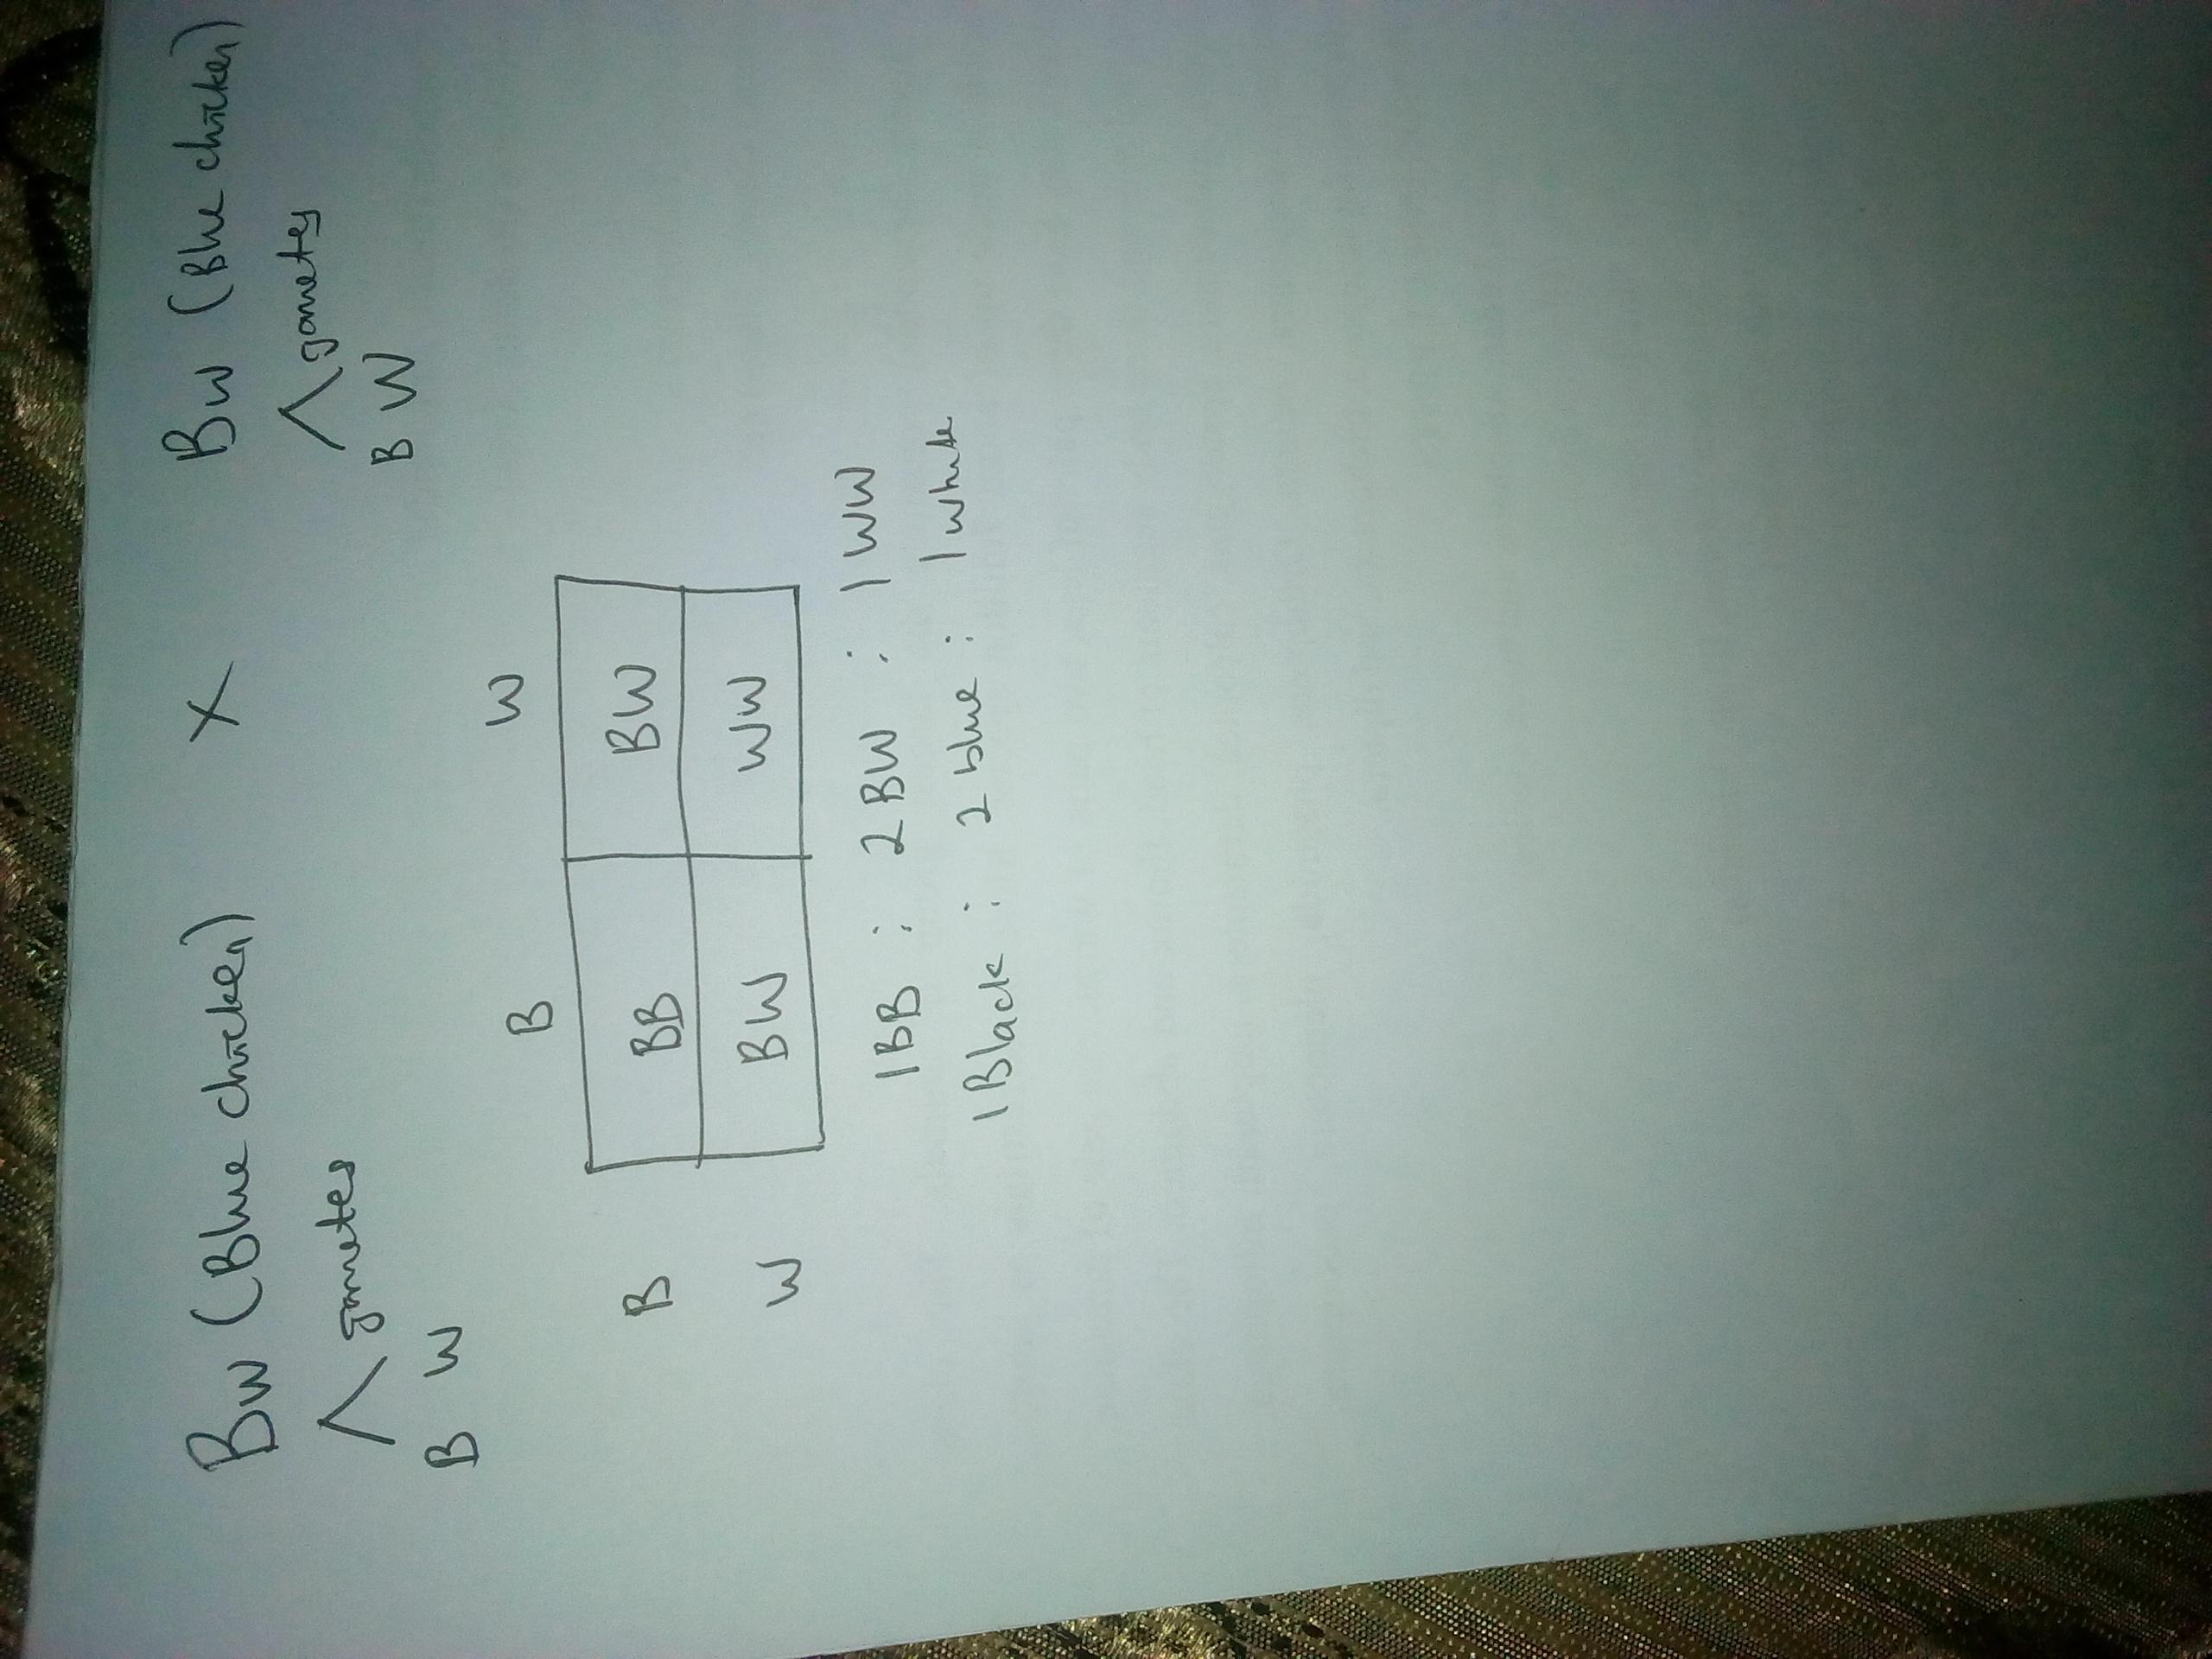 BW (Blue chicken) X BW (Blue chicken)
gametes gametes
B W B W
B W
B BB BW
W BW WW
1BB : 2BW : 1WW
1Black : 2 blue : 1 white